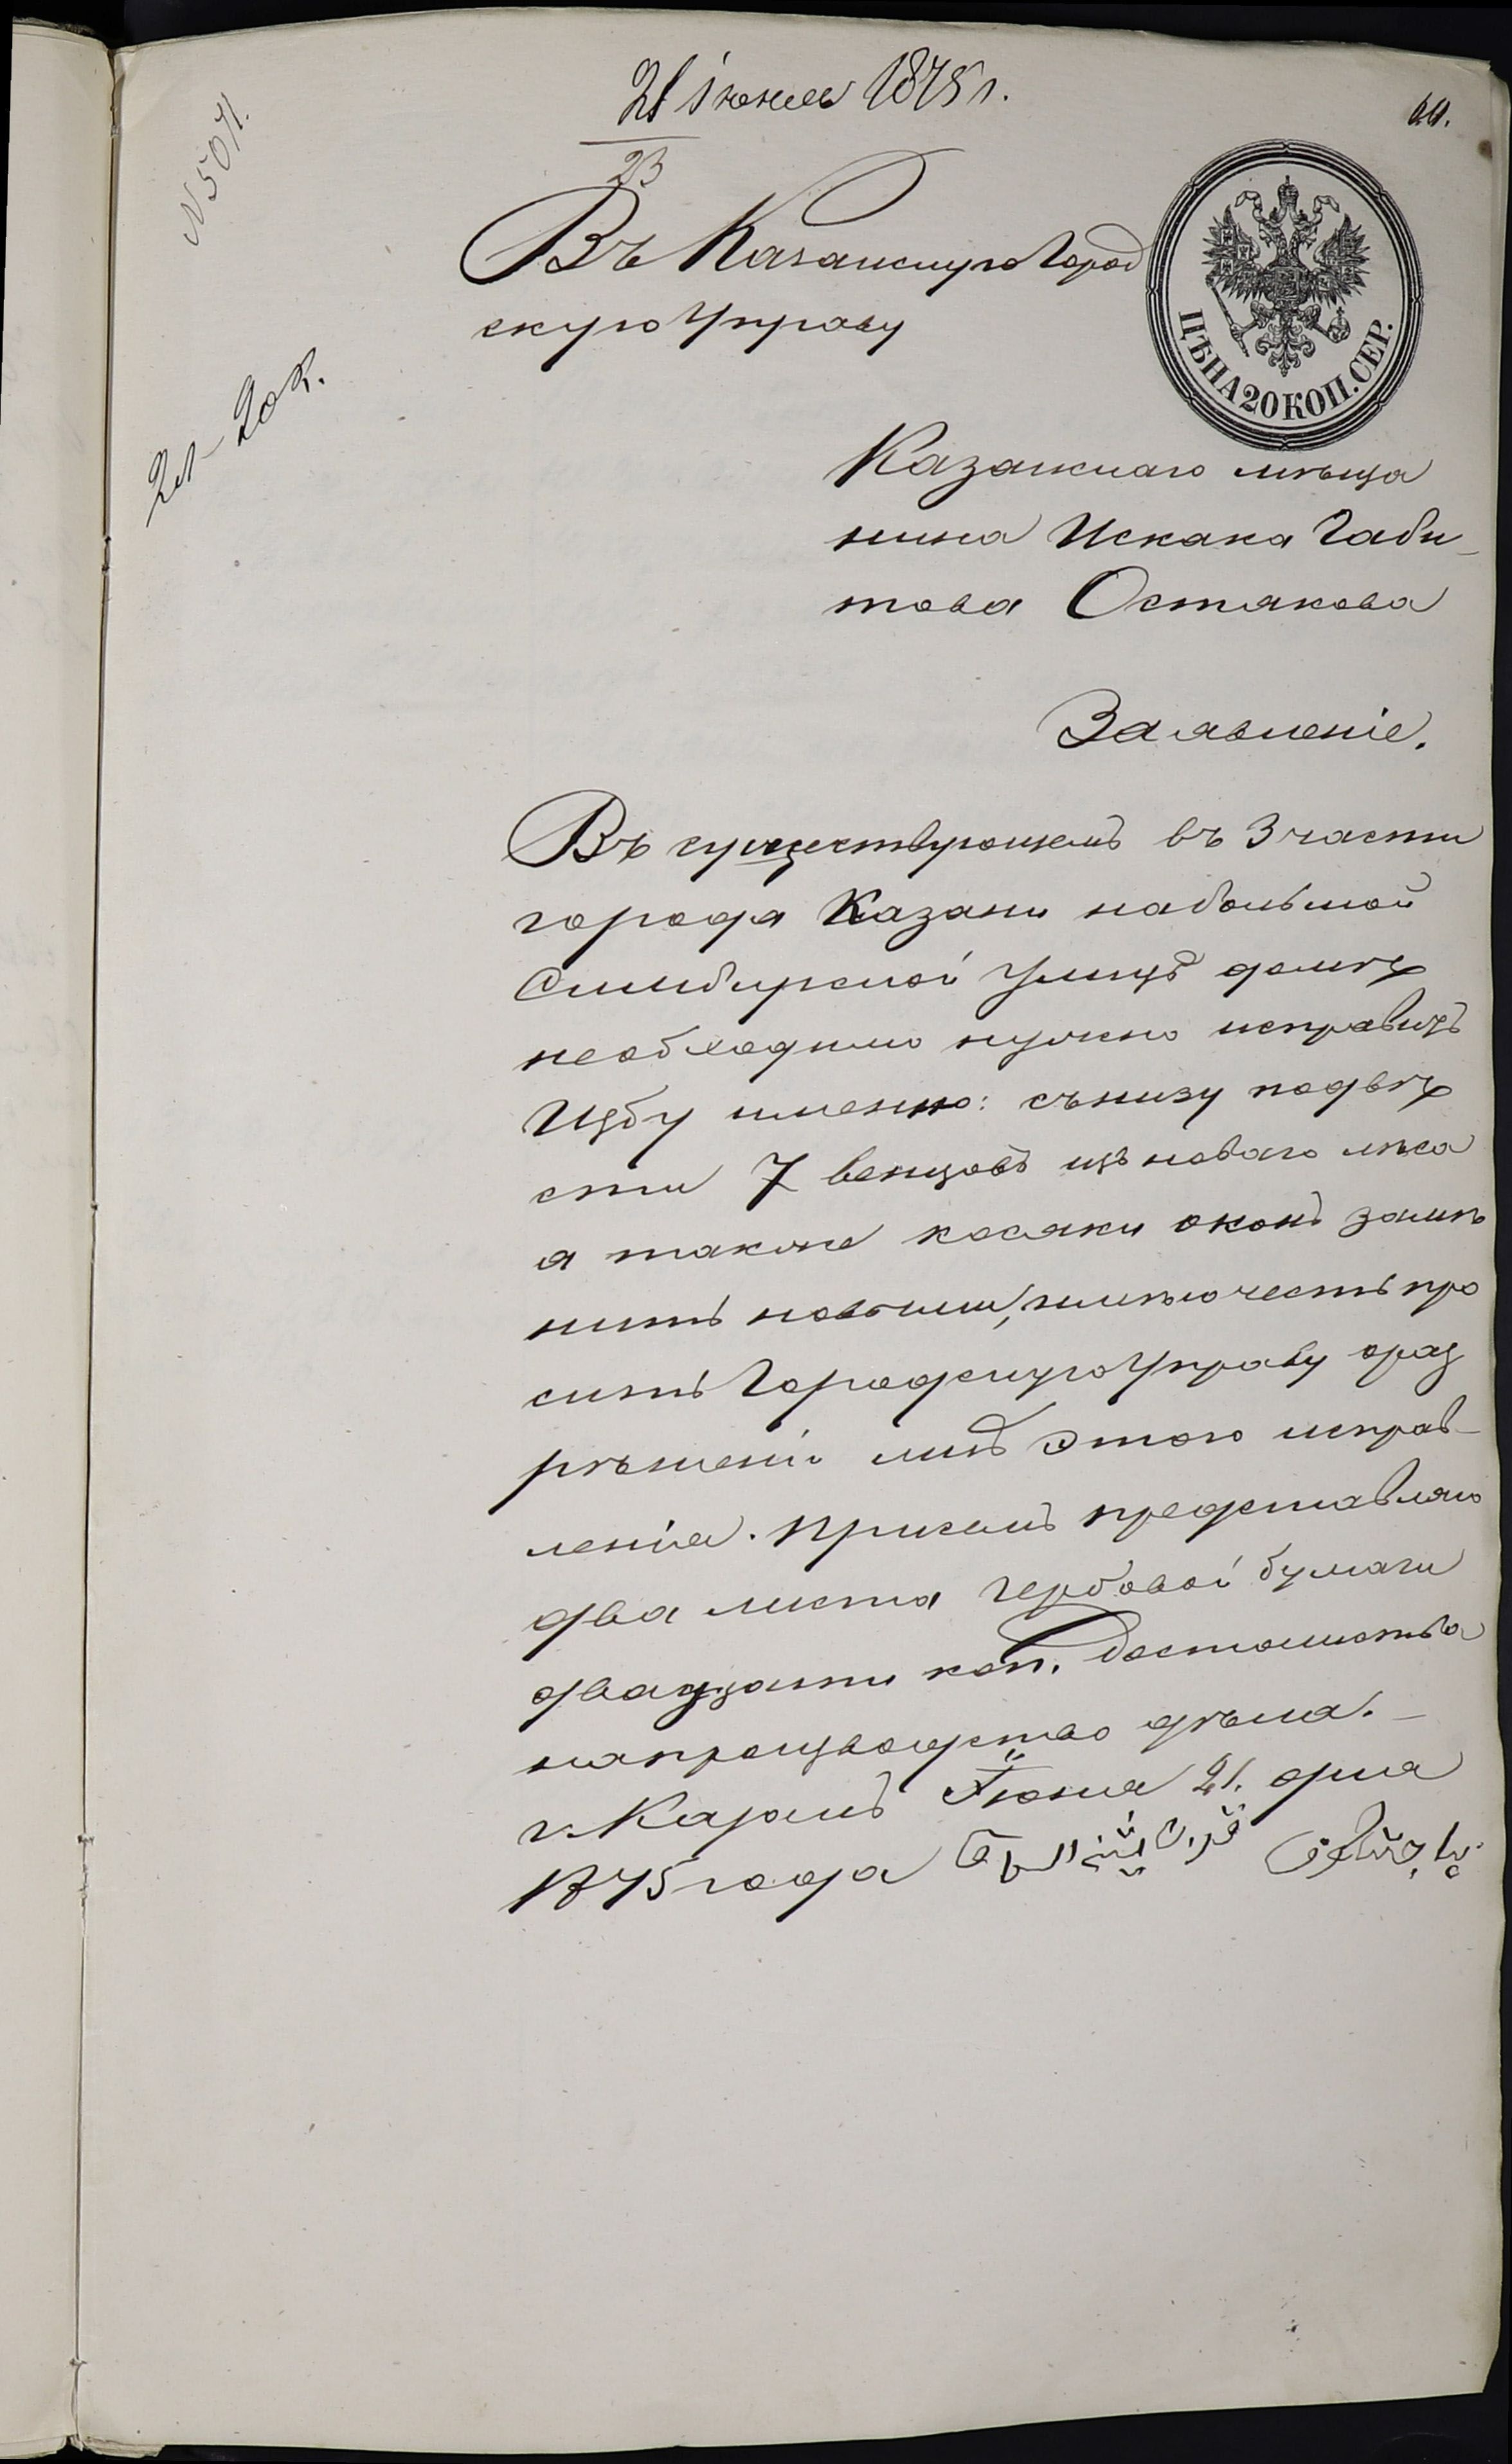 21 іюня 1875 г.
23
№ 5071.
Въ Казанскую Город
скую Управу
ЦѢНА 20 КОП. СЕР.
2 л – 20 к.
Казанскаго мѣща
нина Искака Габи-
това Остякова
Заявленіе.
Въ существующемъ въ 3 части
города Казани на большой
Симбирской улицѣ домѣ
необходимо нужно исправить
Избу именно: сънизу подвѣ
сти 7 венцовъ изъ новаго лѣса
а также косяки оконъ замѣ
нить новыми, имѣю честь про
сить Городскую Управу ораз
рѣшеніи мнѣ этого исправ-
ленія. При семъ представляю
два листа гербовой бумаги
двадцати коп. достоинства
на производство дѣла.-
г. Казань Іюня 21. дня
1875 года